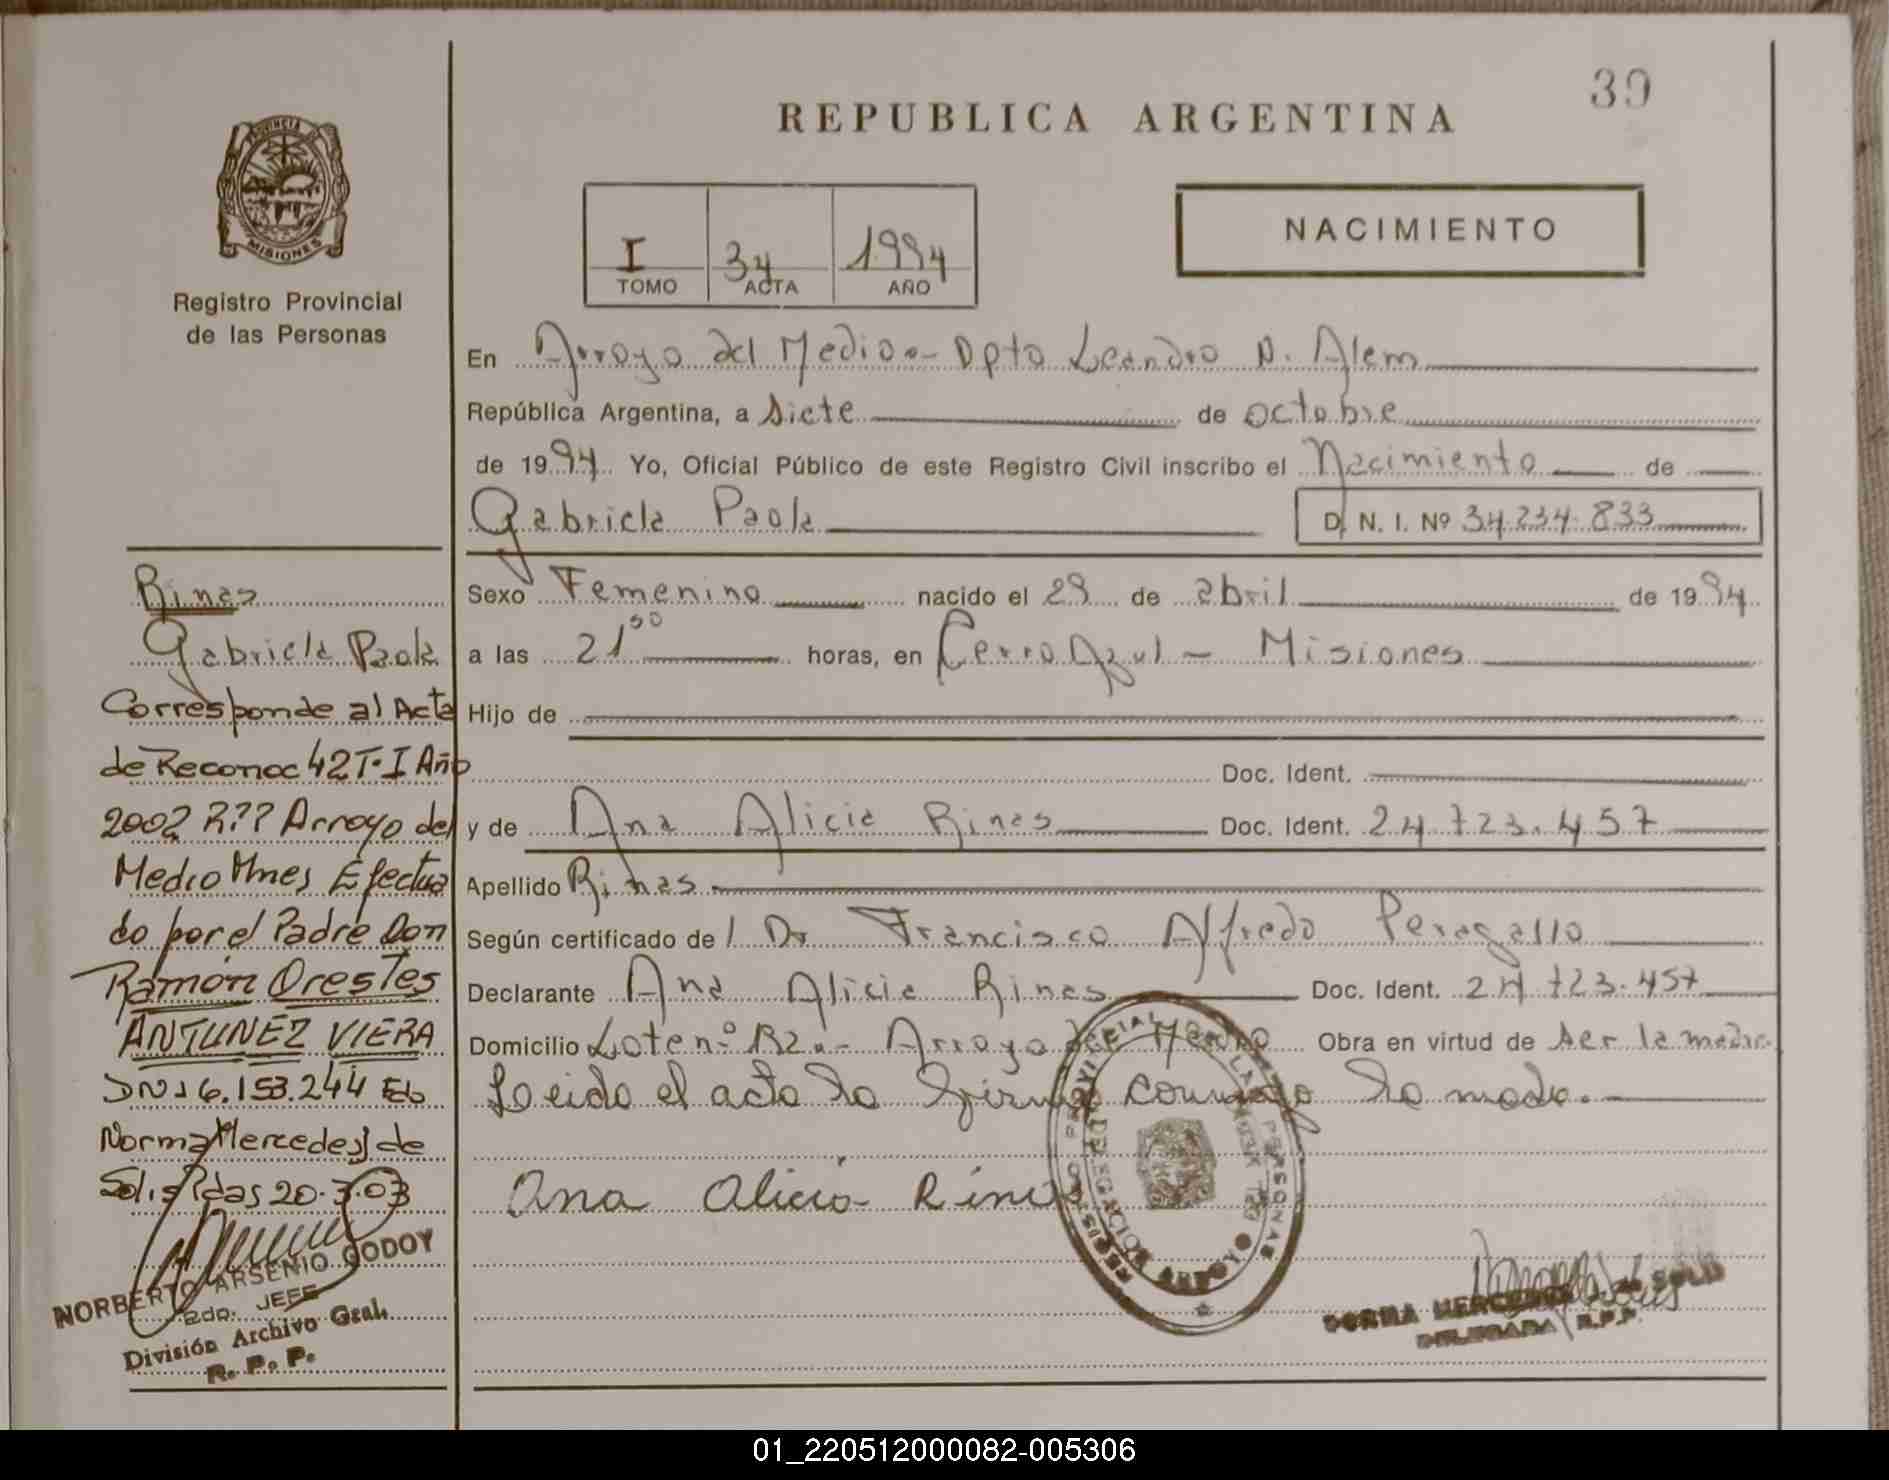 39
REPUBLICA ARGENTINA
PROVINCIA DE
MISIONES
Registro Provincial
de las Personas
I 34 1994
TOMO ACTA AÑO
NACIMIENTO
En Arroyo del Medio - Dpto Leandro N. Alem
República Argentina, a siete de octubre
de 1994 Yo, Oficial Público de este Registro Civil inscribo el Nacimiento de
Gabriela Paola D. N. I. Nº 34.234.833
Sexo Femenino nacido el 29 de abril de 1994
a las 21 50 horas, en Cerro Azul - Misiones
Hijo de
Doc. Ident.
y de Ana Alicia Rinas Doc. Ident. 24.723.457
Apellido Rinas
Según certificado del Dr Francisco Alfredo Peragallo
Declarante Ana Alicia Rinas Doc. Ident. 24.723.457
Domicilio Lote nº 82 - Arroyo del Medio Obra en virtud de ser la madre
Leido el acta la firma conmigo la madre.
Ana Alicia Rinas
Rinas
Gabriela Paola
Corresponde al Acta
de Reconoc 42 T. I Año
2002 R?? Arroyo del
Medio Mnes Efectua
do por el Padre Don
Ramón Orestes
ANTUNEZ VIERA
DNI 6.153.244 Fdo
Norma Mercedes J de
Solis Pdas 20.3.03
NORBERTO ARSENIO GODOY
2do. JEFE
División Archivo Gral.
R. P. P.
NORMA MERCEDES J. de SOLIS
DELEGADA R.P.P.
01_220512000082-005306